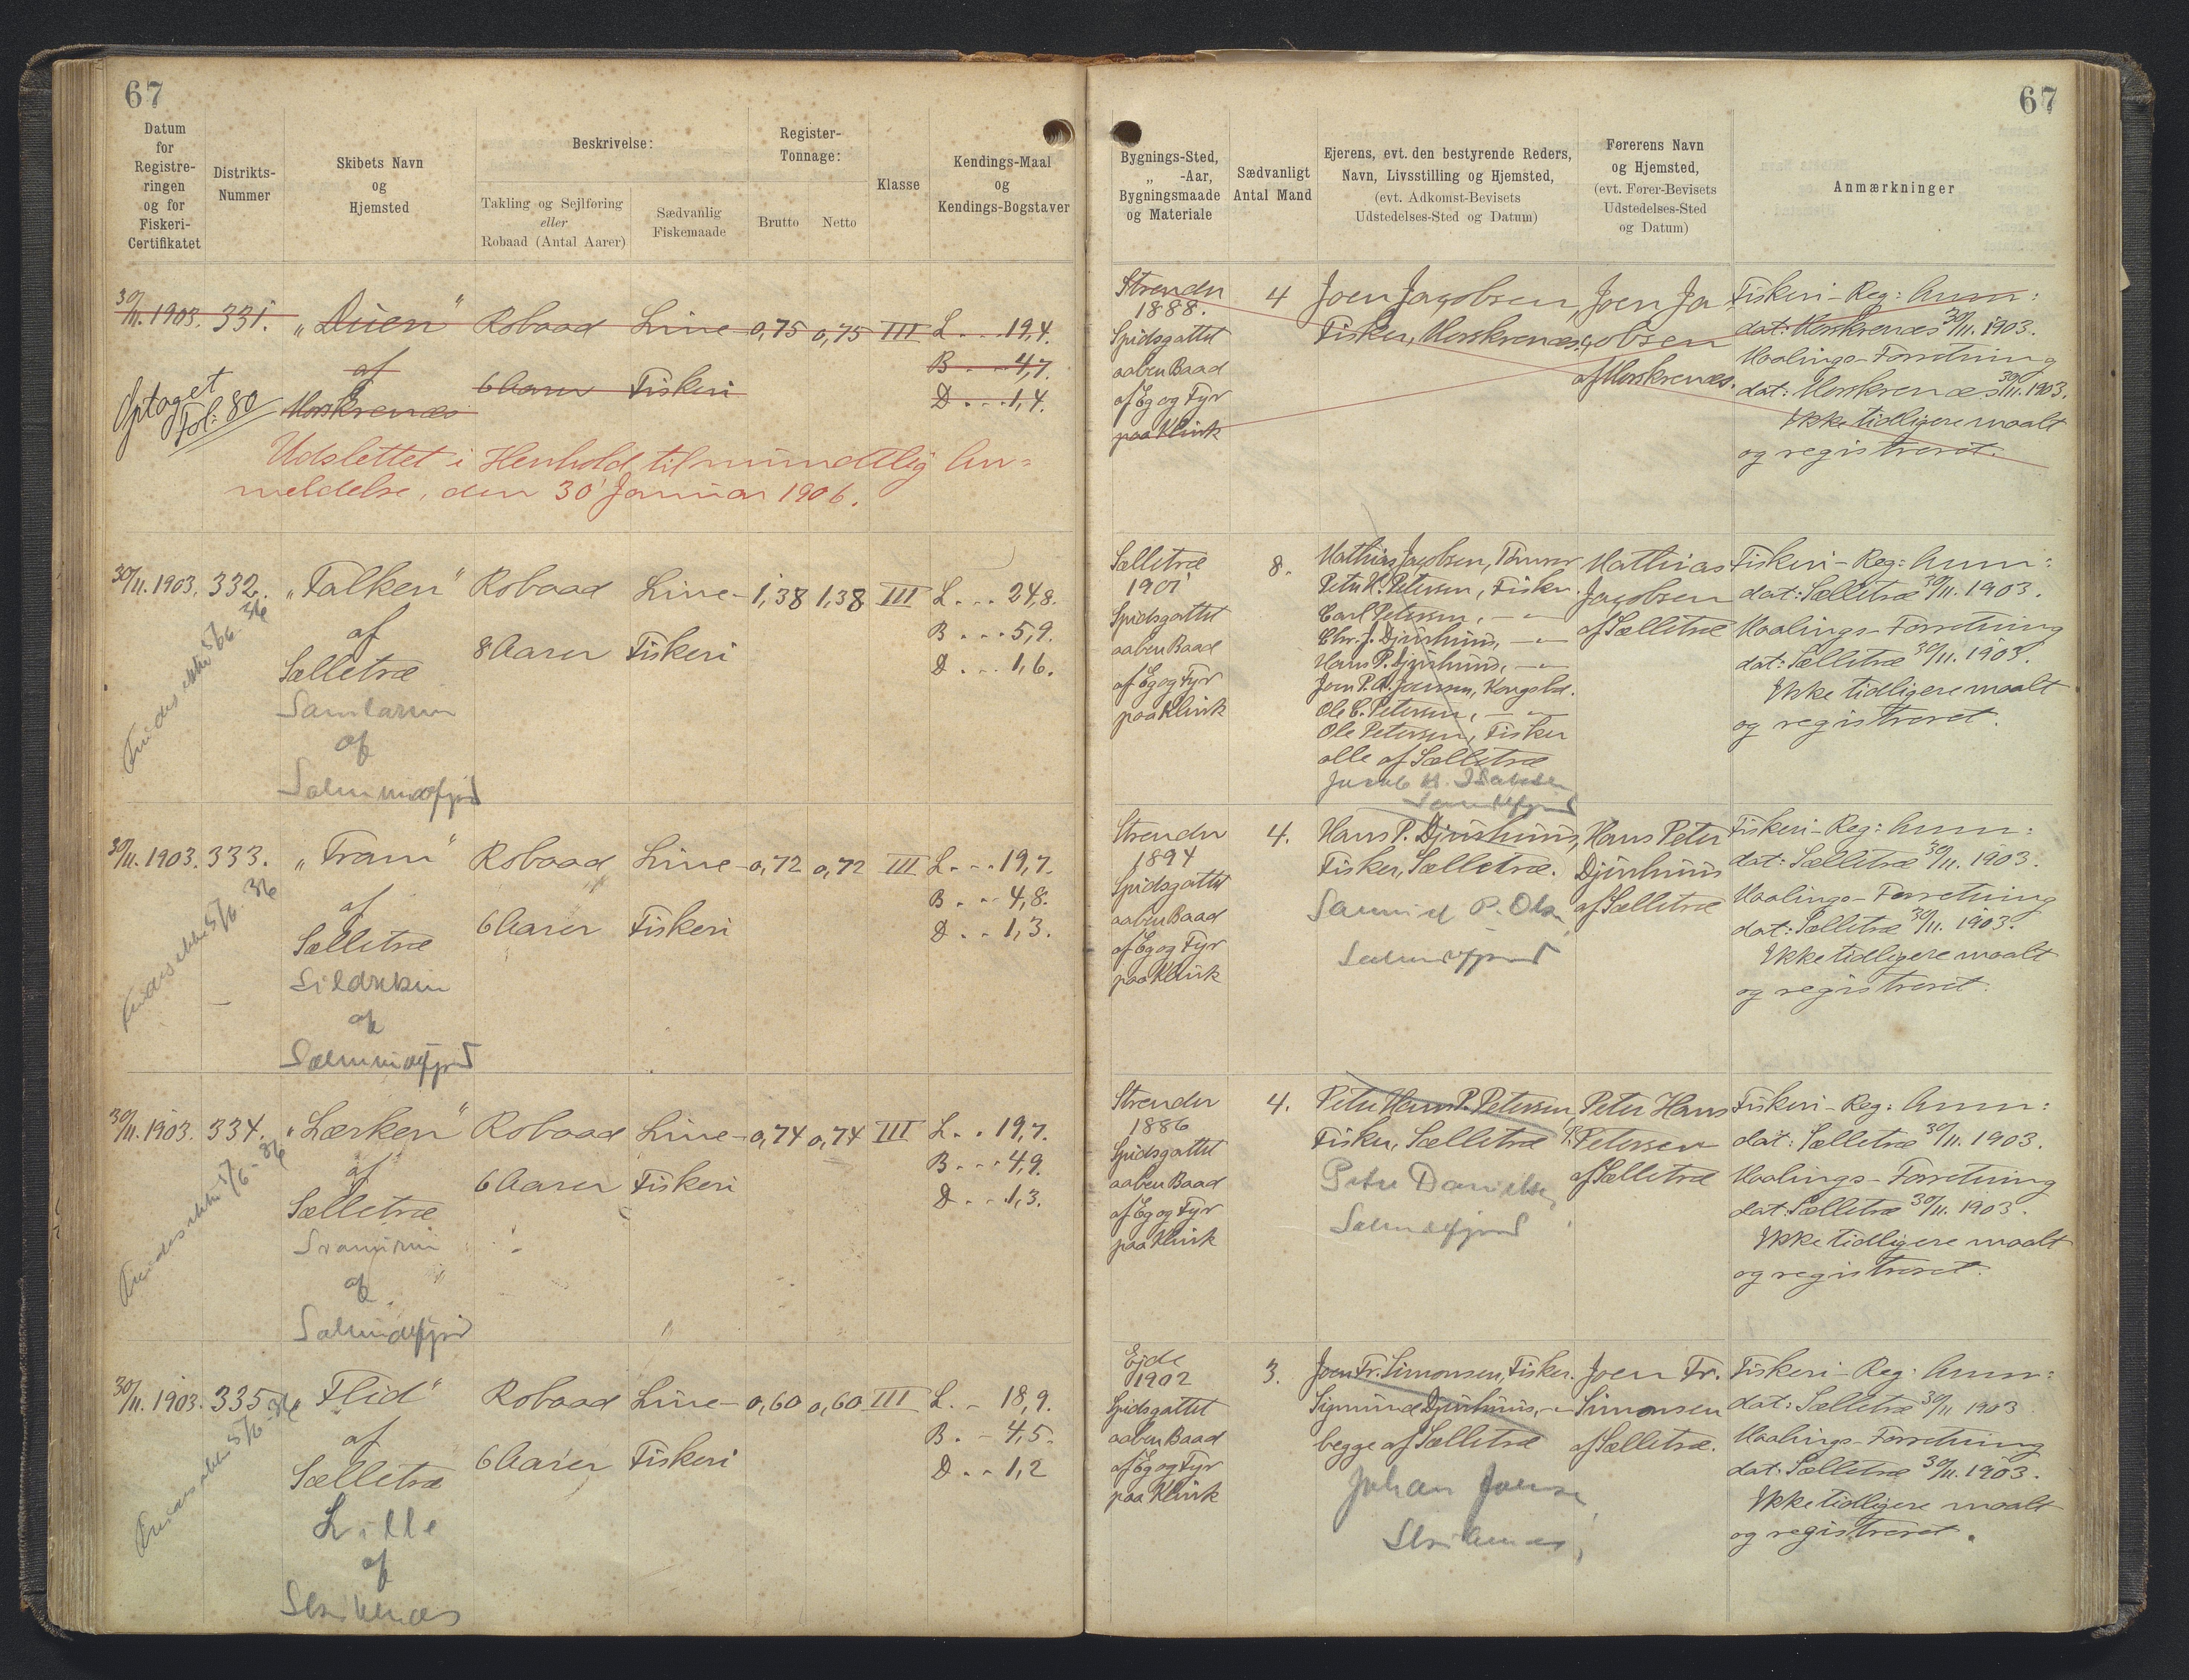 67
Datum
for
Registre-
ringen
og for
Fiskeri-
Certifikatet
Distrikts-
Nummer
Skibets Navn
og
Hjemsted
Beskrivelse:
Takling og Sejlføring
eller
Robaad (Antal Aarer)
Sædvanlig
Fiskemaade
Register-
Tonnage:
Brutto
Netto
Klasse
Kendings-Maal
og
Kendings-Bogstaver
30/11. 1903. 331. "Duen" Robaad Line- 0,75 0,75 III L... 19,4.
af 6 Aarer Fiskeri B... 4,7.
Morskrenæs D... 1,4.
Optaget
Fol: 80
Udslettet i Henhold til mundtlig An=
meldelse, den 30' Januar 1906.
30/11. 1903. 332. "Falken" Robaad Line- 1,38 1,38 III L... 24,8.
af 8 Aarer Fiskeri B... 5,9.
Sælletræ D... 1,6.
af
Findes ikke 5/6 - 36
30/11. 1903. 333. "Fram" Robaad Line- 0,72 0,72 III L... 19,7.
af 6 Aarer Fiskeri B... 4,8.
Sælletræ D... 1,3.
af
Findes ikke 5/6 - 36
30/11. 1903. 334. "Lærken" Robaad Line- 0,74 0,74 III L.. 19,7.
af 6 Aarer Fiskeri B... 4,9.
Sælletræ D... 1,3.
af
Findes ikke 5/6 - 36
30/11. 1903. 335. "Flid" Robaad Line- 0,60 0,60 III L.. 18,9.
af 6 Aarer Fiskeri B.. 4,5.
Sælletræ D... 1,2
Lille
af
Findes ikke 5/6 - 36
67
Bygnings-Sted,
" -Aar,
Bygningsmaade
og Materiale
Sædvanligt
Antal Mand
Ejerens, evt. den bestyrende Reders,
Navn, Livsstilling og Hjemsted,
(evt. Adkomst-Bevisets
Udstedelses-Sted og Datum)
Førerens Navn
og Hjemsted,
(evt. Fører-Bevisets
Udstedelses-Sted
og Datum)
Anmærkninger
Strender
1888.
Spidsgattet
aaben Baad
af Eg og Fyr
paa Klink
4
Joen Jacobsen,
Fisker, Morskrenæs.
Joen Ja-
cobsen
af Morskrenæs.
Fiskeri-Reg: Anm:
dat: Morskrenæs 30/11. 1903.
Maalings-Forretning
dat: Morskrenæs 30/11. 1903.
Ikke tidligere maalt
og registreret.
Sælletræ
1901
Spidsgattet
aaben Baad
af Eg og Fyr
paa Klink
8.
Mathias Jacobsen, Tømrer
Peter H. Petersen, Fisker.
Carl Petersen, - " -
Chr. J. Djurhuus, - " -
Hans P. Djurhuus, - " -
Joen P. A. Joensen, Kongsbd.
Ole C. Petersen, - " -
Ole Petersen, Fisker
alle af Sælletræ
Mathias
Jacobsen
af Sælletræ
Fiskeri-Reg: Anm:
dat: Sælletræ 30/11. 1903.
Maalings-Forretning
dat: Sælletræ 30/11. 1903.
Ikke tidligere maalt
og registreret.
Strender
1894
Spidsgattet
aaben Baad
af Eg og Fyr
paa Klink
4.
Hans P. Djurhuus,
Fisker, Sælletræ.
Hans Peter
Djurhuus
af Sælletræ
Fiskeri-Reg: Anm:
dat: Sælletræ 30/11. 1903.
Maalings-Forretning
dat: Sælletræ 30/11. 1903.
Ikke tidligere maalt
og registreret.
Strender
1886
Spidsgattet
aaben Baad
af Eg og Fyr
paa Klink
4.
Peter Hans P. Petersen,
Fisker, Sælletræ
Peter
Peter Hans
P. Petersen
af Sælletræ
Fiskeri-Reg: Anm:
dat: Sælletræ 30/11. 1903.
Maalings-Forretning
dat: Sælletræ 30/11. 1903.
Ikke tidligere maalt
og registreret.
Ejde
1902
Spidsgattet
aaben Baad
af Eg og Fyr
paa Klink
3.
Joen Fr. Simonsen, Fisker.
Sigmund Djurhuus, - " -
begge af Sælletræ
Johan
Joen Fr.
Simonsen
af Sælletræ.
Fiskeri-Reg: Anm:
dat: Sælletræ 30/11 1903
Maalings-Forretning
dat: Sælletræ 30/11. 1903.
Ikke tidligere maalt
og registreret.